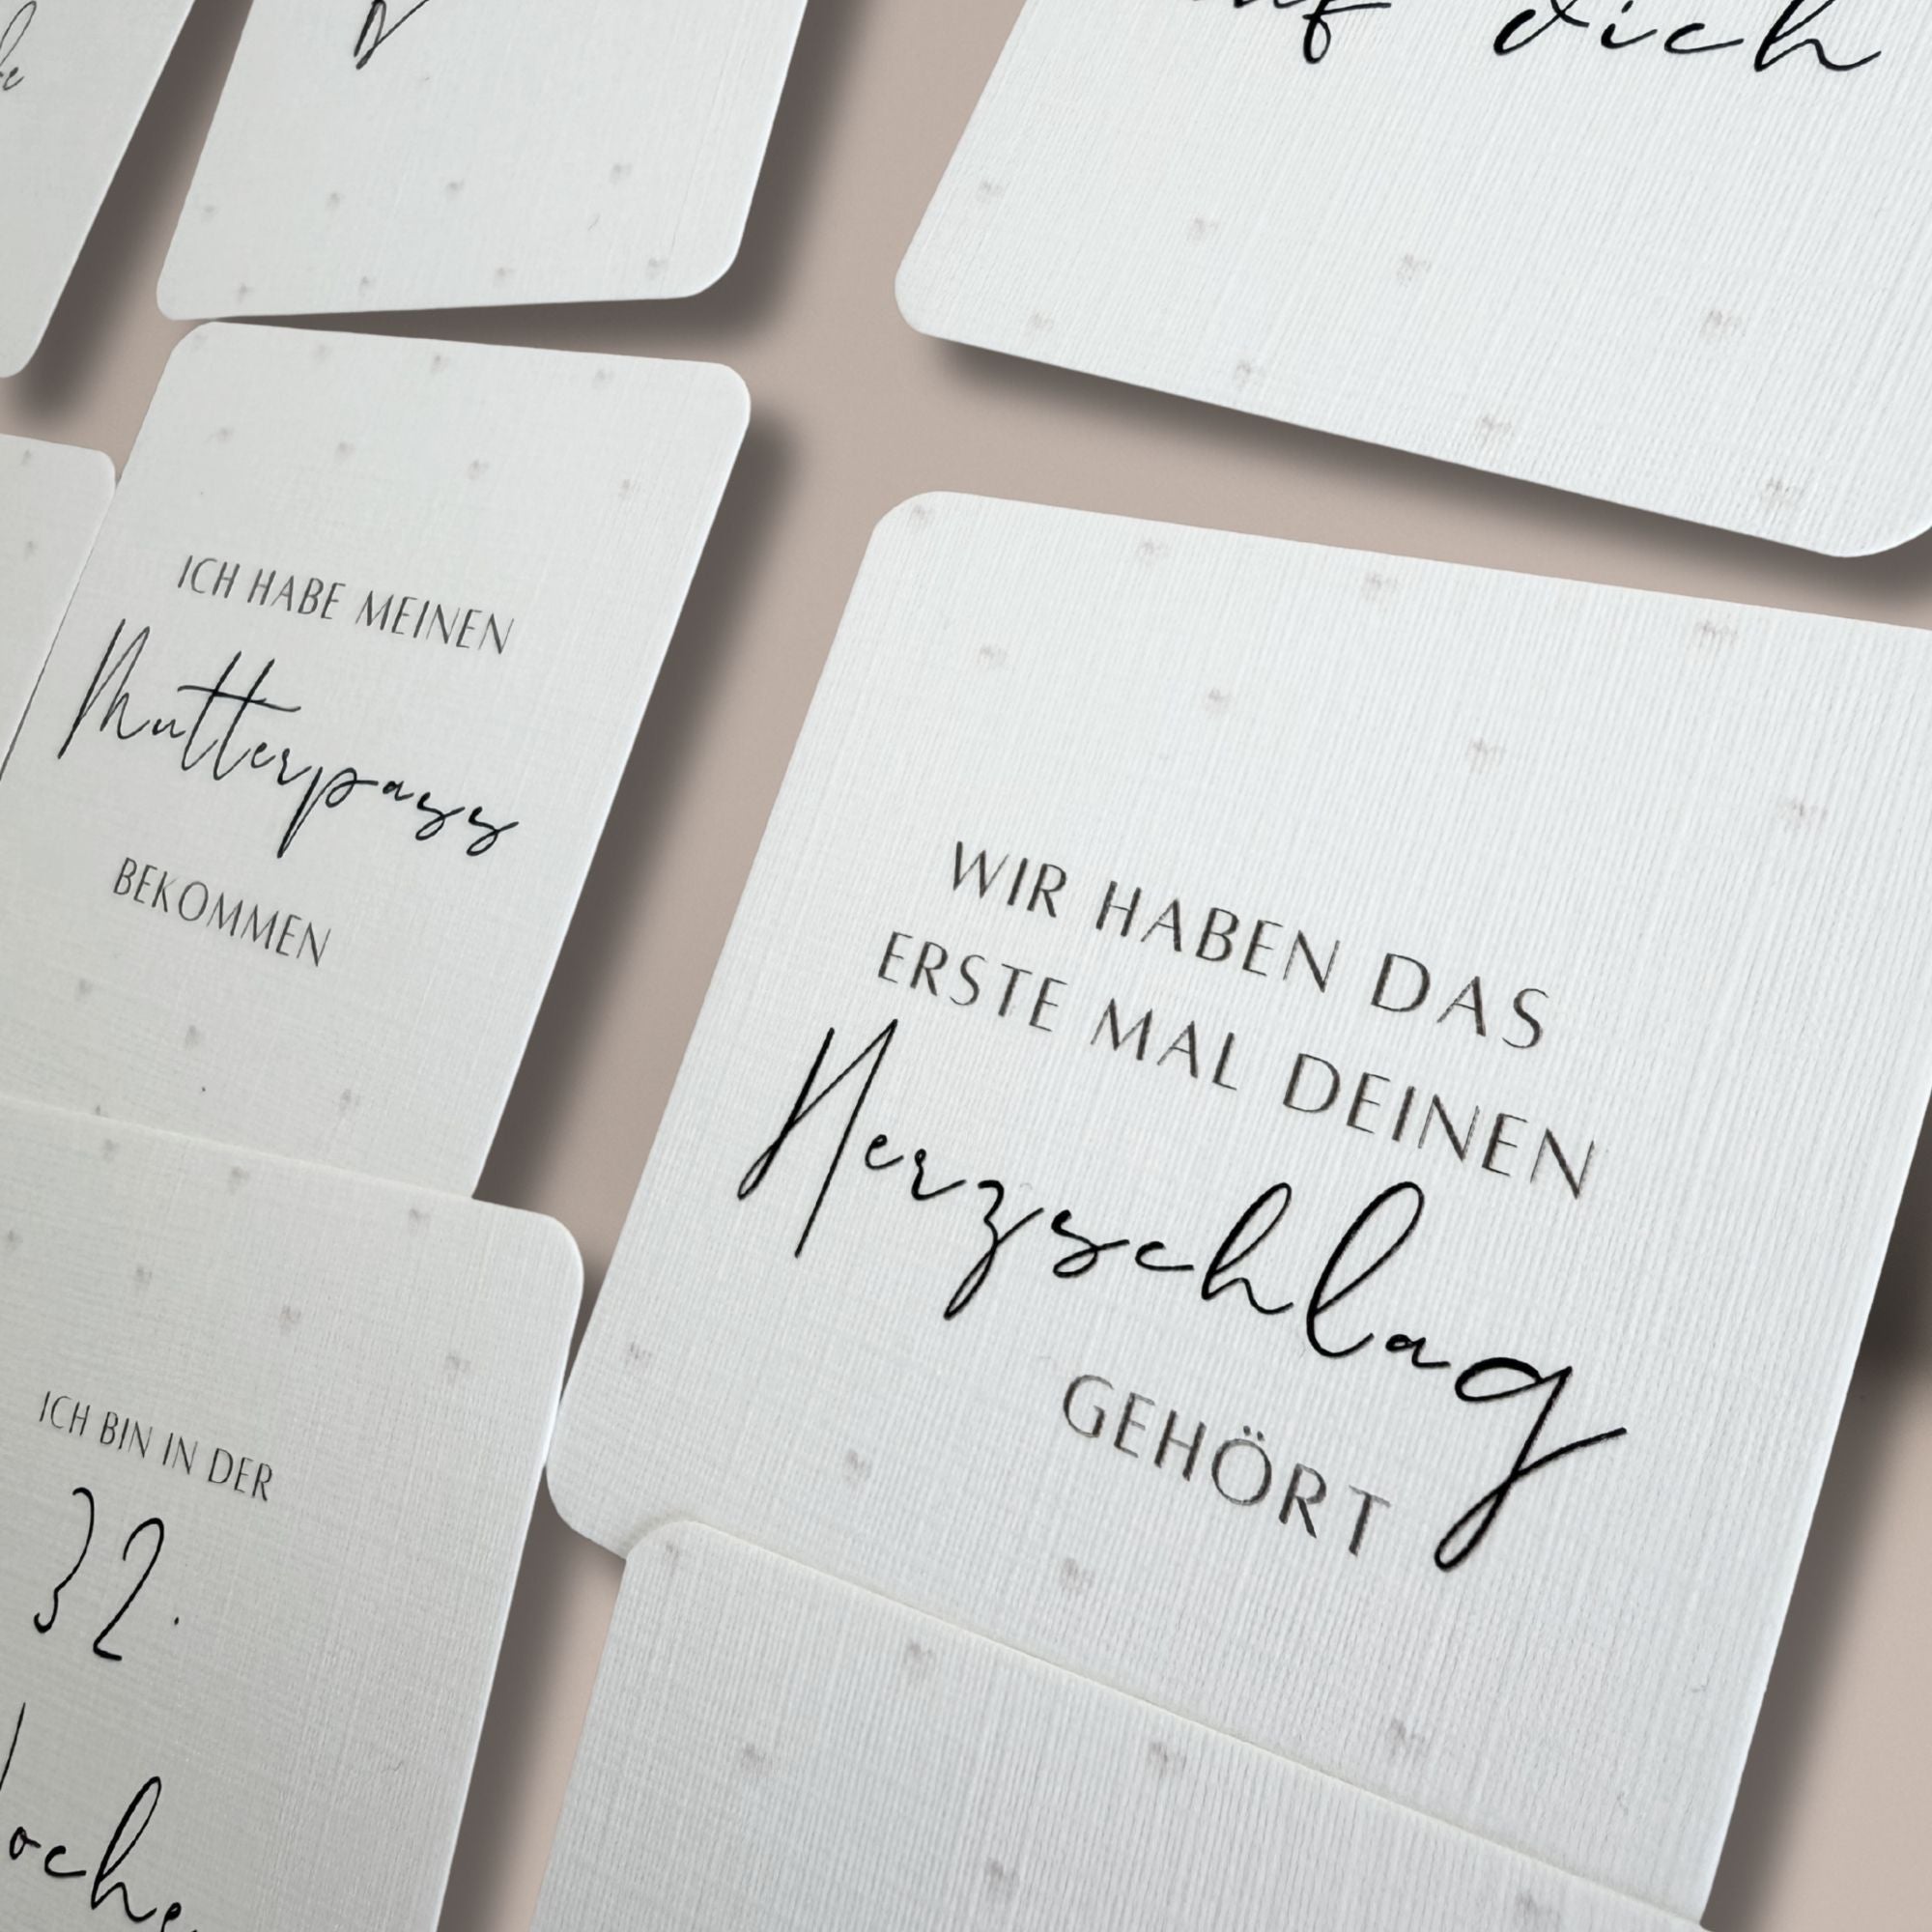 dich
ICH HABE MEINEN
Mutterpass
BEKOMMEN
WIR HABEN DAS
ERSTE MAL DEINEN
Herzschlag
GEHÖRT
ICH BIN IN DER
32.